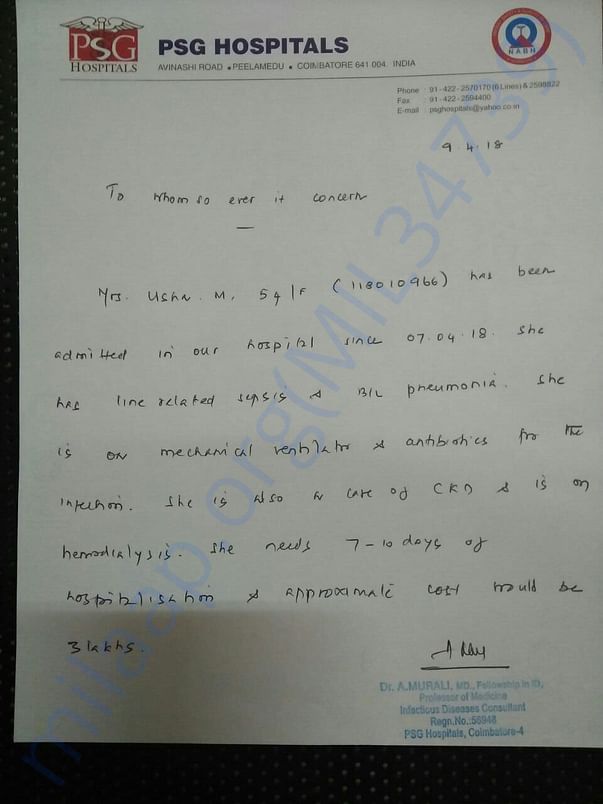 PSG
HOSPITALS
PSG HOSPITALS
AVINASHI ROAD • PEELAMEDU • COIMBATORE 641 004. INDIA
NABH
Phone : 91-422-2570170 (6 Lines) & 2598822
Fax : 91-422-2594400
E-mail : psghospitals@yahoo.co.in
9.4.18
To whom so ever it concern
Mrs. Usha. M, 54/F (I18010966) has been
admitted in our hospital since 07.04.18. She
has line related sepsis & B/L pneumonia. She
is on mechanical ventilator & antibiotics for the
infection. She is also a case of CKD & is on
hemodialysis. She needs 7-10 days of
hospitalisation & approximate cost would be
3 lakhs.
Dr. A.MURALI, MD., Fellowship in ID,
Professor of Medicine
Infectious Diseases Consultant
Regn.No.:56948
PSG Hospitals, Coimbatore-4
milaap.org(MIL34739)